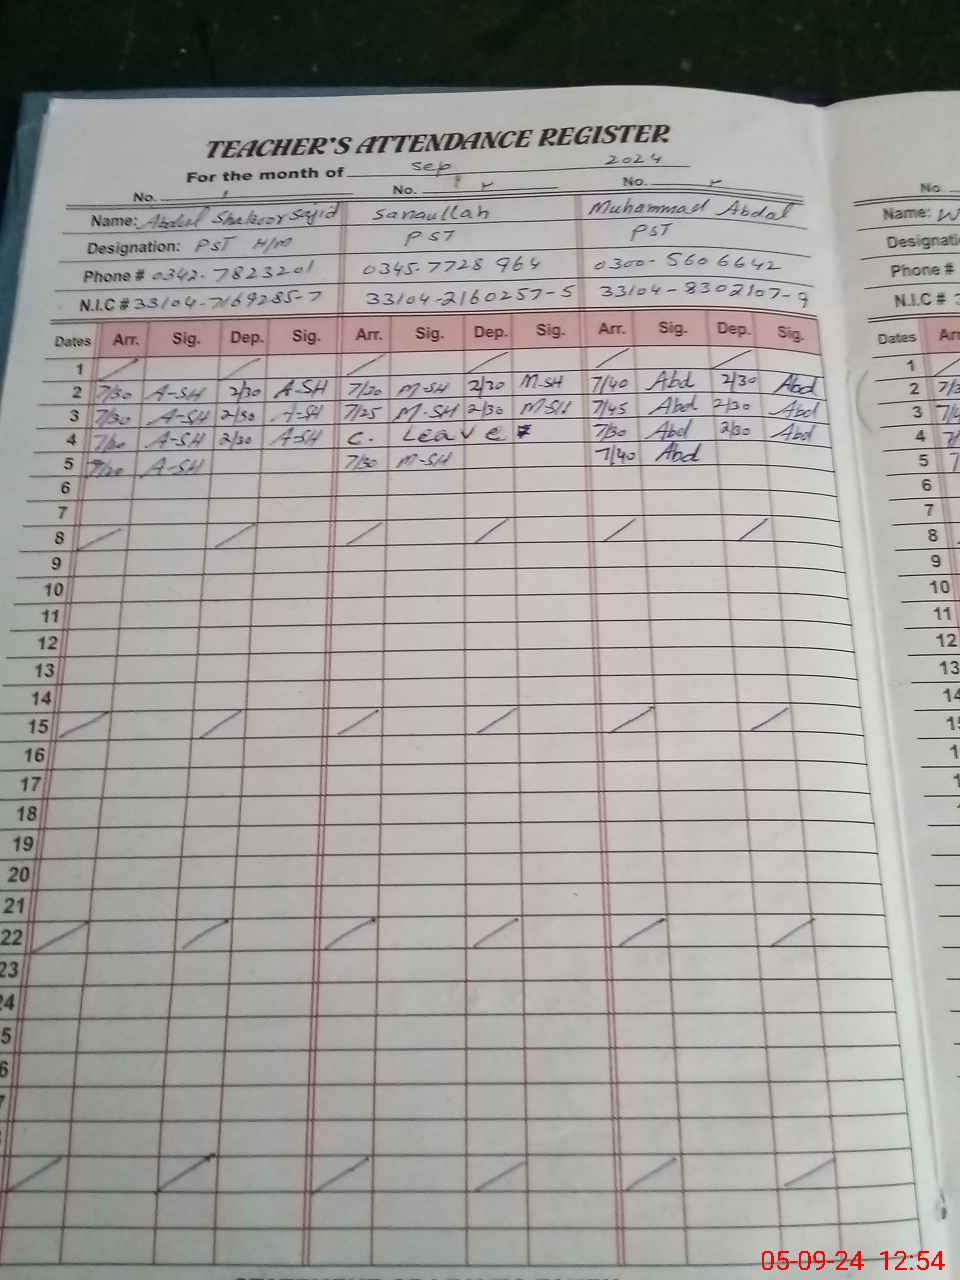 TEACHER'S ATTENDANCE REGISTER
For the month of Sep 2024
No. 1 No. No.
Name: Abdul Shakoor Sajid Sanaullah Muhammad Abdal
Designation: PST H/M PST PST
Phone # 0342-7823201 0345-7728964 0300-5606642
N.I.C # 33104-7169285-7 33104-2160257-5 33104-8302107-9
Dates Arr. Sig. Dep. Sig. Arr. Sig. Dep. Sig. Arr. Sig. Dep. Sig.
1
2 7/30 A-SH 2/30 A-SH 7/30 M-SH 2/30 M-SH 7/40 Abd 2/30 Abd
3 7/30 A-SH 2/30 A-SH 7/25 M-SH 2/30 M-SH 7/45 Abd 2/30 Abd
4 A-SH 2/30 A-SH C. Leave 7/30 Abd 2/30 Abd
5 A-SH 7/30 M-SH 7/40 Abd
6
7
8
9
10
11
12
13
14
15
16
17
18
19
20
21
22
23
24
5
6
7
No.
Name:
Designati
Phone #
N.I.C #
Dates Arr
1
2
3
4
5
6
7
8
9
10
11
12
13
14
05-09-24 12:54